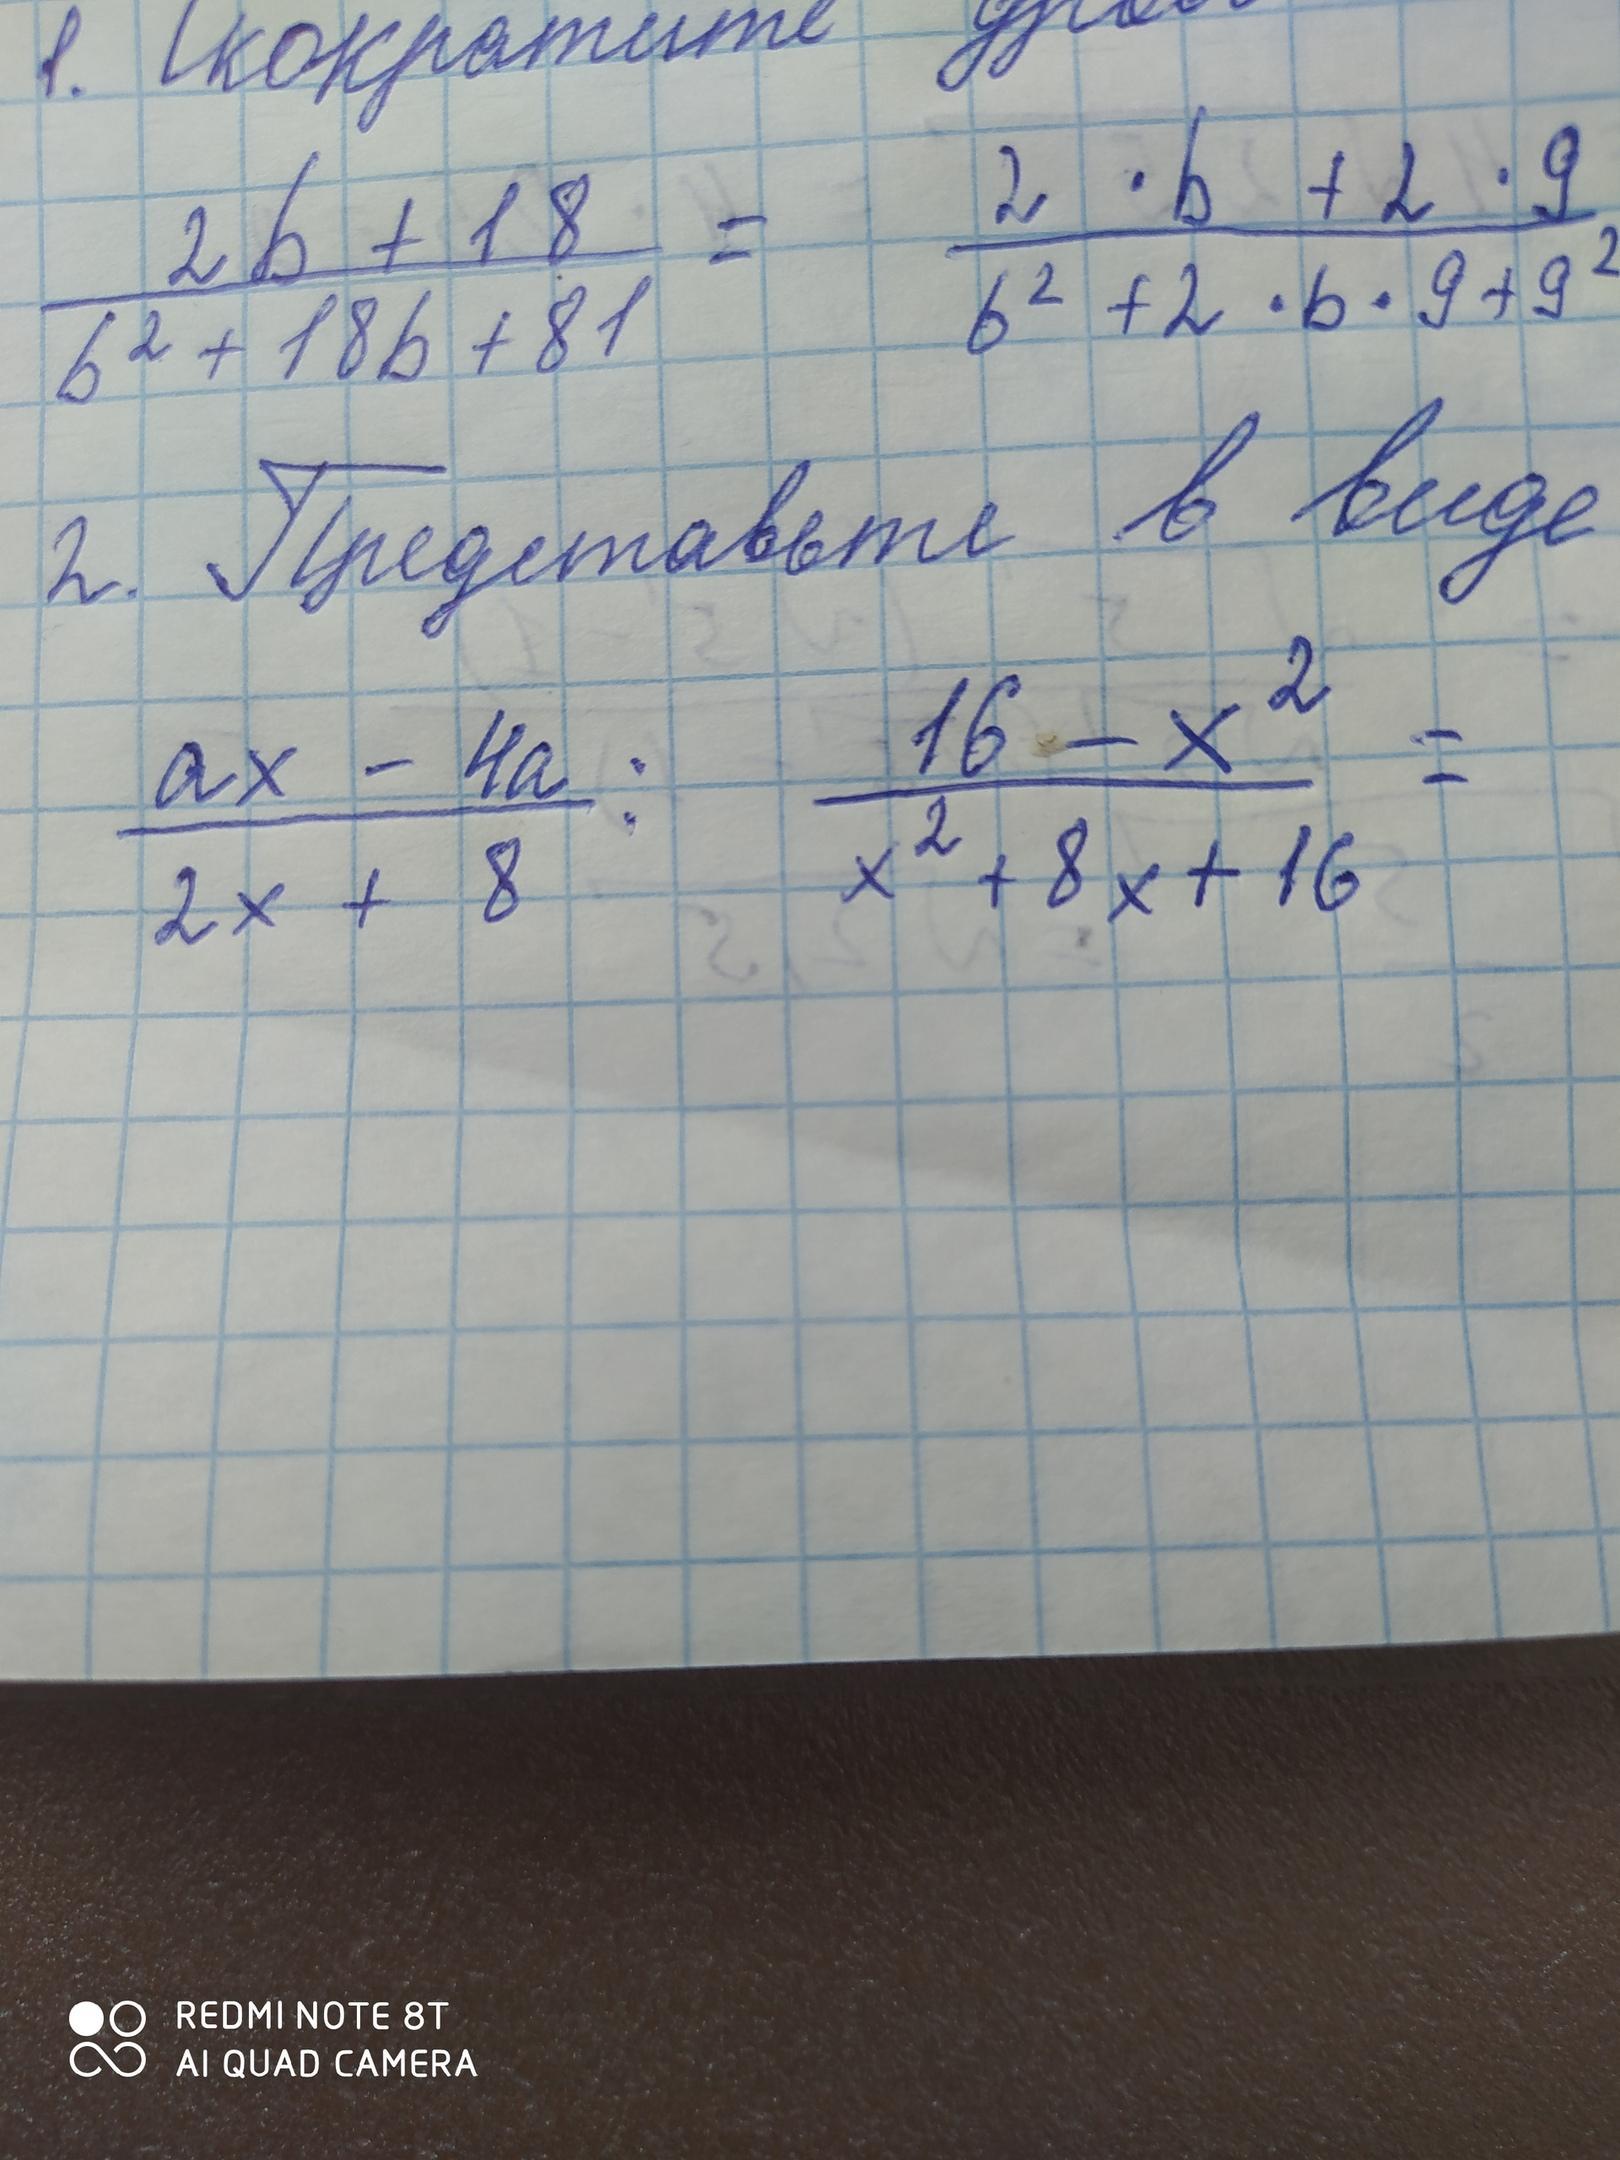 1. Скократите дроб
2b + 18 / b² + 18b + 81 = 2 · b + 2 · 9 / b² + 2 · b · 9 + 9²
2. Представьте в виде
ax - 4a / 2x + 8 : 16 - x² / x² + 8x + 16 =
REDMI NOTE 8T
AI QUAD CAMERA